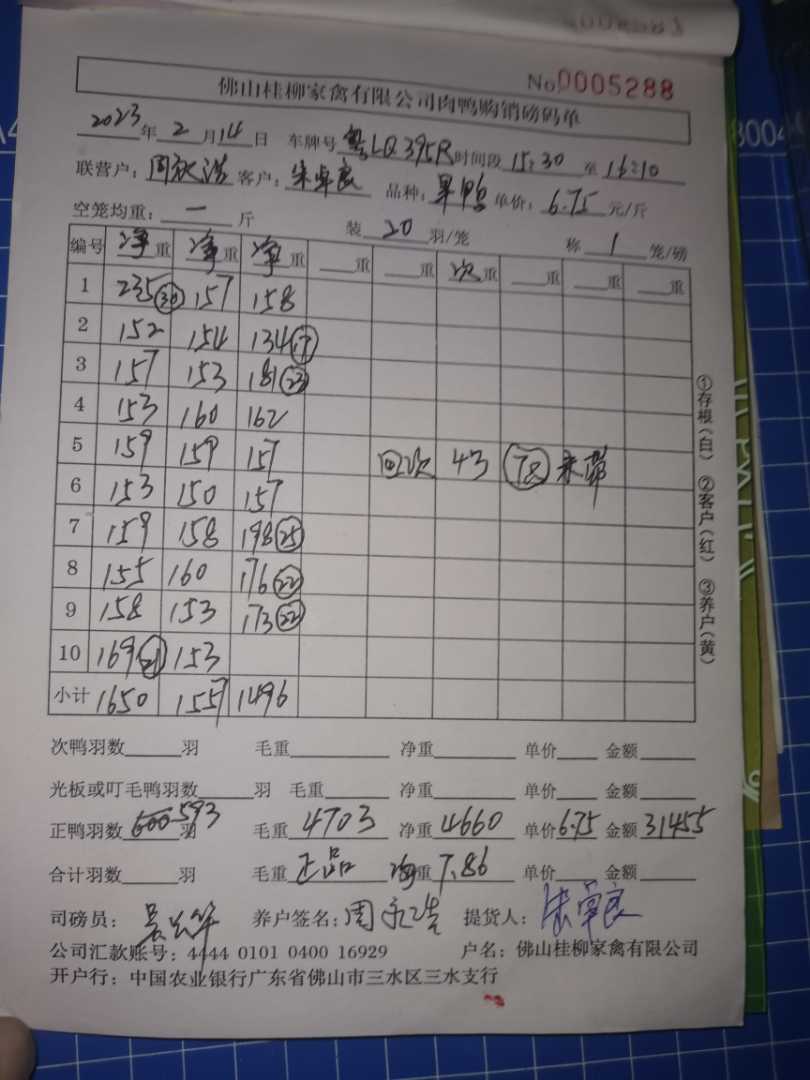 佛山桂柳家禽有限公司肉鸭购销磅码单
No 0005288
2023年2月14日 车牌号 粤LQ395R 时间段 15:30 至 16:10
联营户: 周 客户: 朱卓良 品种: 单鸭 单价: 6.75 元/斤
空笼均重: 一 斤 装 20 羽/笼 称 1 笼/磅
编号 净重 净重 净重 重 重 次重 重 重 重
1 235 (30) 157 158
2 152 154 134 (17)
3 157 153 181 (23)
4 153 160 162
5 159 159 157 回次 43 (7.8)
6 153 150 157
7 159 158 198 (25)
8 155 160 176 (22)
9 158 153 173 (22)
10 169 (21) 153
小计 1650 1557 1496
次鸭羽数 羽 毛重 净重 单价 金额
光板或叮毛鸭羽数 羽 毛重 净重 单价 金额
正鸭羽数 600 593 羽 毛重 4703 净重 4660 单价 6.75 金额 31455
合计羽数 羽 毛重 正品 净重 7.86 单价 金额
司磅员: 养户签名: 周 提货人: 朱卓良
公司汇款账号: 4444 0101 0400 16929 户名: 佛山桂柳家禽有限公司
开户行: 中国农业银行广东省佛山市三水区三水支行
①存根(白) ②客户(红) ③养户(黄)